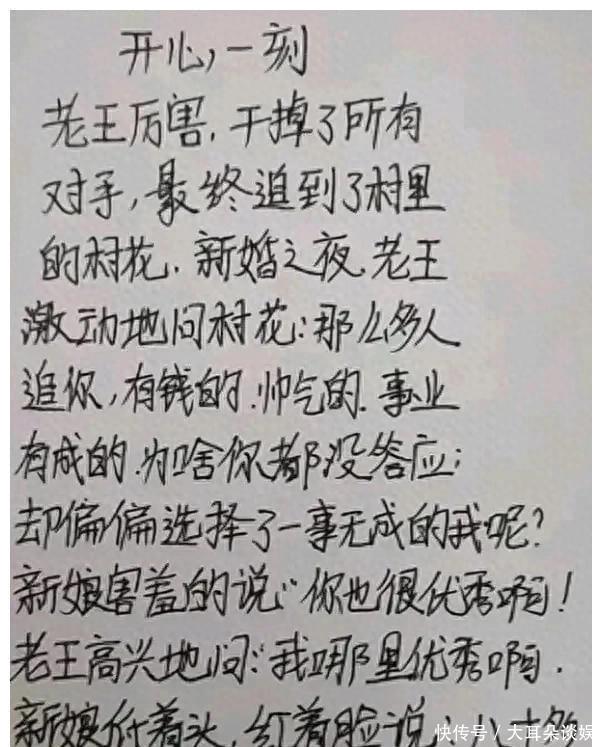 开心,一刻
老王厉害,干掉了所有
对手,最终追到了村里
的村花.新婚之夜.老王
激动地问村花:那么多人
追你,有钱的.帅气的.事业
有成的.为啥你都没答应;
却偏偏选择了一事无成的我呢?
新娘害羞的说“你也很优秀啊!
老王高兴地问:“我哪里优秀啊.
新娘低着头,红着脸说
快传号/大耳朵谈娱